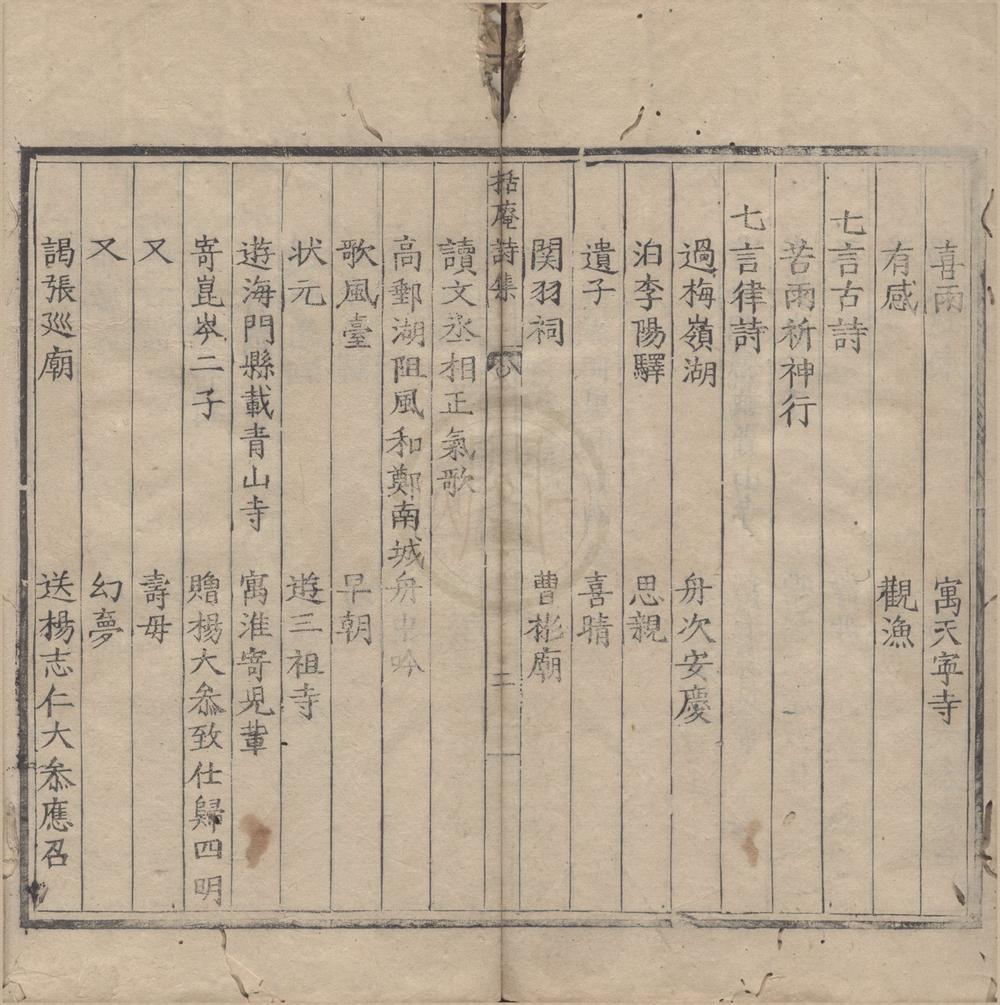 喜雨　寓天寧寺
有感　觀漁
七言古詩
苦雨祈神行
七言律詩
過梅嶺湖　舟次安慶
泊李陽驛　思親
遺子　喜晴
関羽祠　曹彬廟
括庵詩集　二
讀文丞相正氣歌
高郵湖阻風和鄭南城舟中吟
歌風臺　早朝
状元　遊三祖寺
遊海門縣載青山寺　寓淮寄児軰
寄崑岑二子　贈楊大叅致仕歸四明
又　壽母
又　幻夢
謁張廵廟　送楊志仁大叅應召